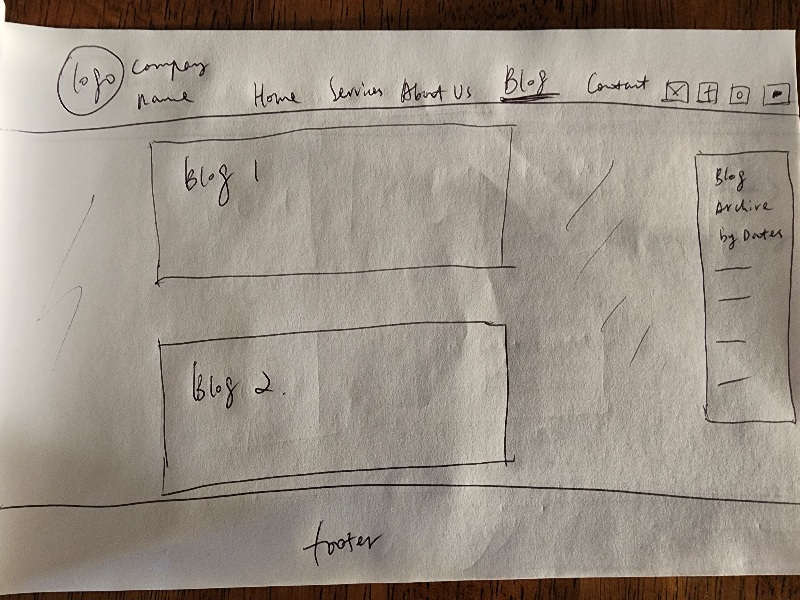 logo
Company
name
Home Services About Us Blog Contact
Blog 1
Blog
Archive
by Dates
Blog 2.
footer